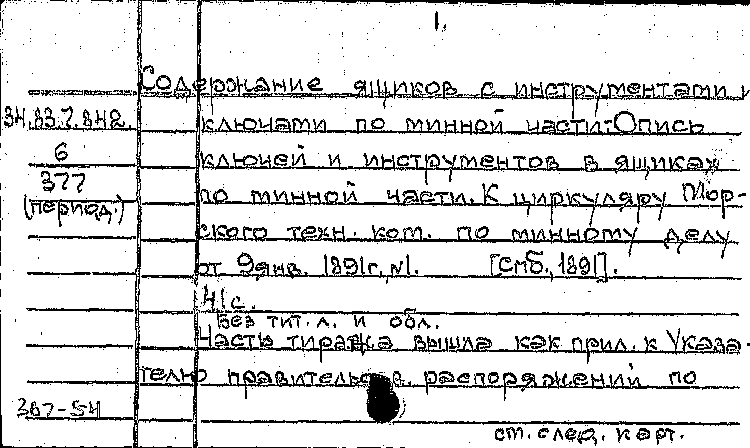 1.
Содержание ящиков с инструментами и
34.83.7.842. ключами по минной части. Опись
6 ключей и инструментов в ящиках
377 по минной части. К циркуляру Мор-
(период.) ского техн. ком. по минному делу
от 9 янв. 1891 г, №1. [Смб., 1891].
41 с.
Без тит. л. и обл.
Часть тиража вышла как прил. к Указа-
телю правительств. распоряжений по
387-54
см. след. карт.